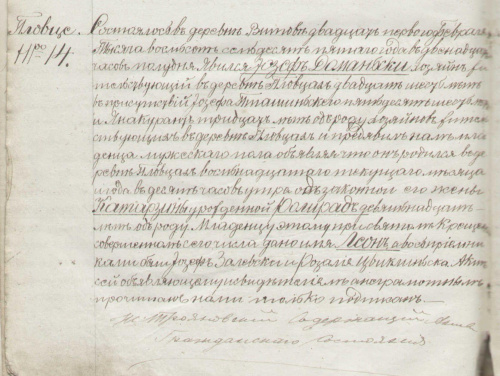 Пловце
№ 14.
Состоялось въ деревнѣ Витовъ двадцать перваго Февраля
тысяча восемьсотъ семьдесятъ пятаго года въ двенадцать
часовъ полудня. Явился Юзефъ Домански хозяинъ жи-
тельствующій въ деревнѣ Пловцахъ двадцать шесть лѣтъ
въ присутствіи Юзефа пятьдесятъ шесть лѣтъ
и Яна тридцать лѣтъ отъ роду хозяйновъ жительст-
вующихъ въ деревнѣ Пловцахъ и предъявилъ намъ мла-
денца мужескаго пола объявляя что онъ родился въ де-
ревнѣ Пловцахъ восемнадцатаго текущаго мѣсяца
и года въ десять часовъ утра отъ законной его жены
Катаржины урожденной девятнадцать
лѣтъ отъ роду. Младенцу этому при святомъ крещеніи
совершенномъ сего числа дано имя Леонъ, а воспріемни-
ками были Юзефъ и Розалія Актъ
сей объявляющему и свидѣтелямъ неграмотнымъ
прочитанъ нами только подписанъ.
Содержащій Акты
Гражданскаго Состоянія